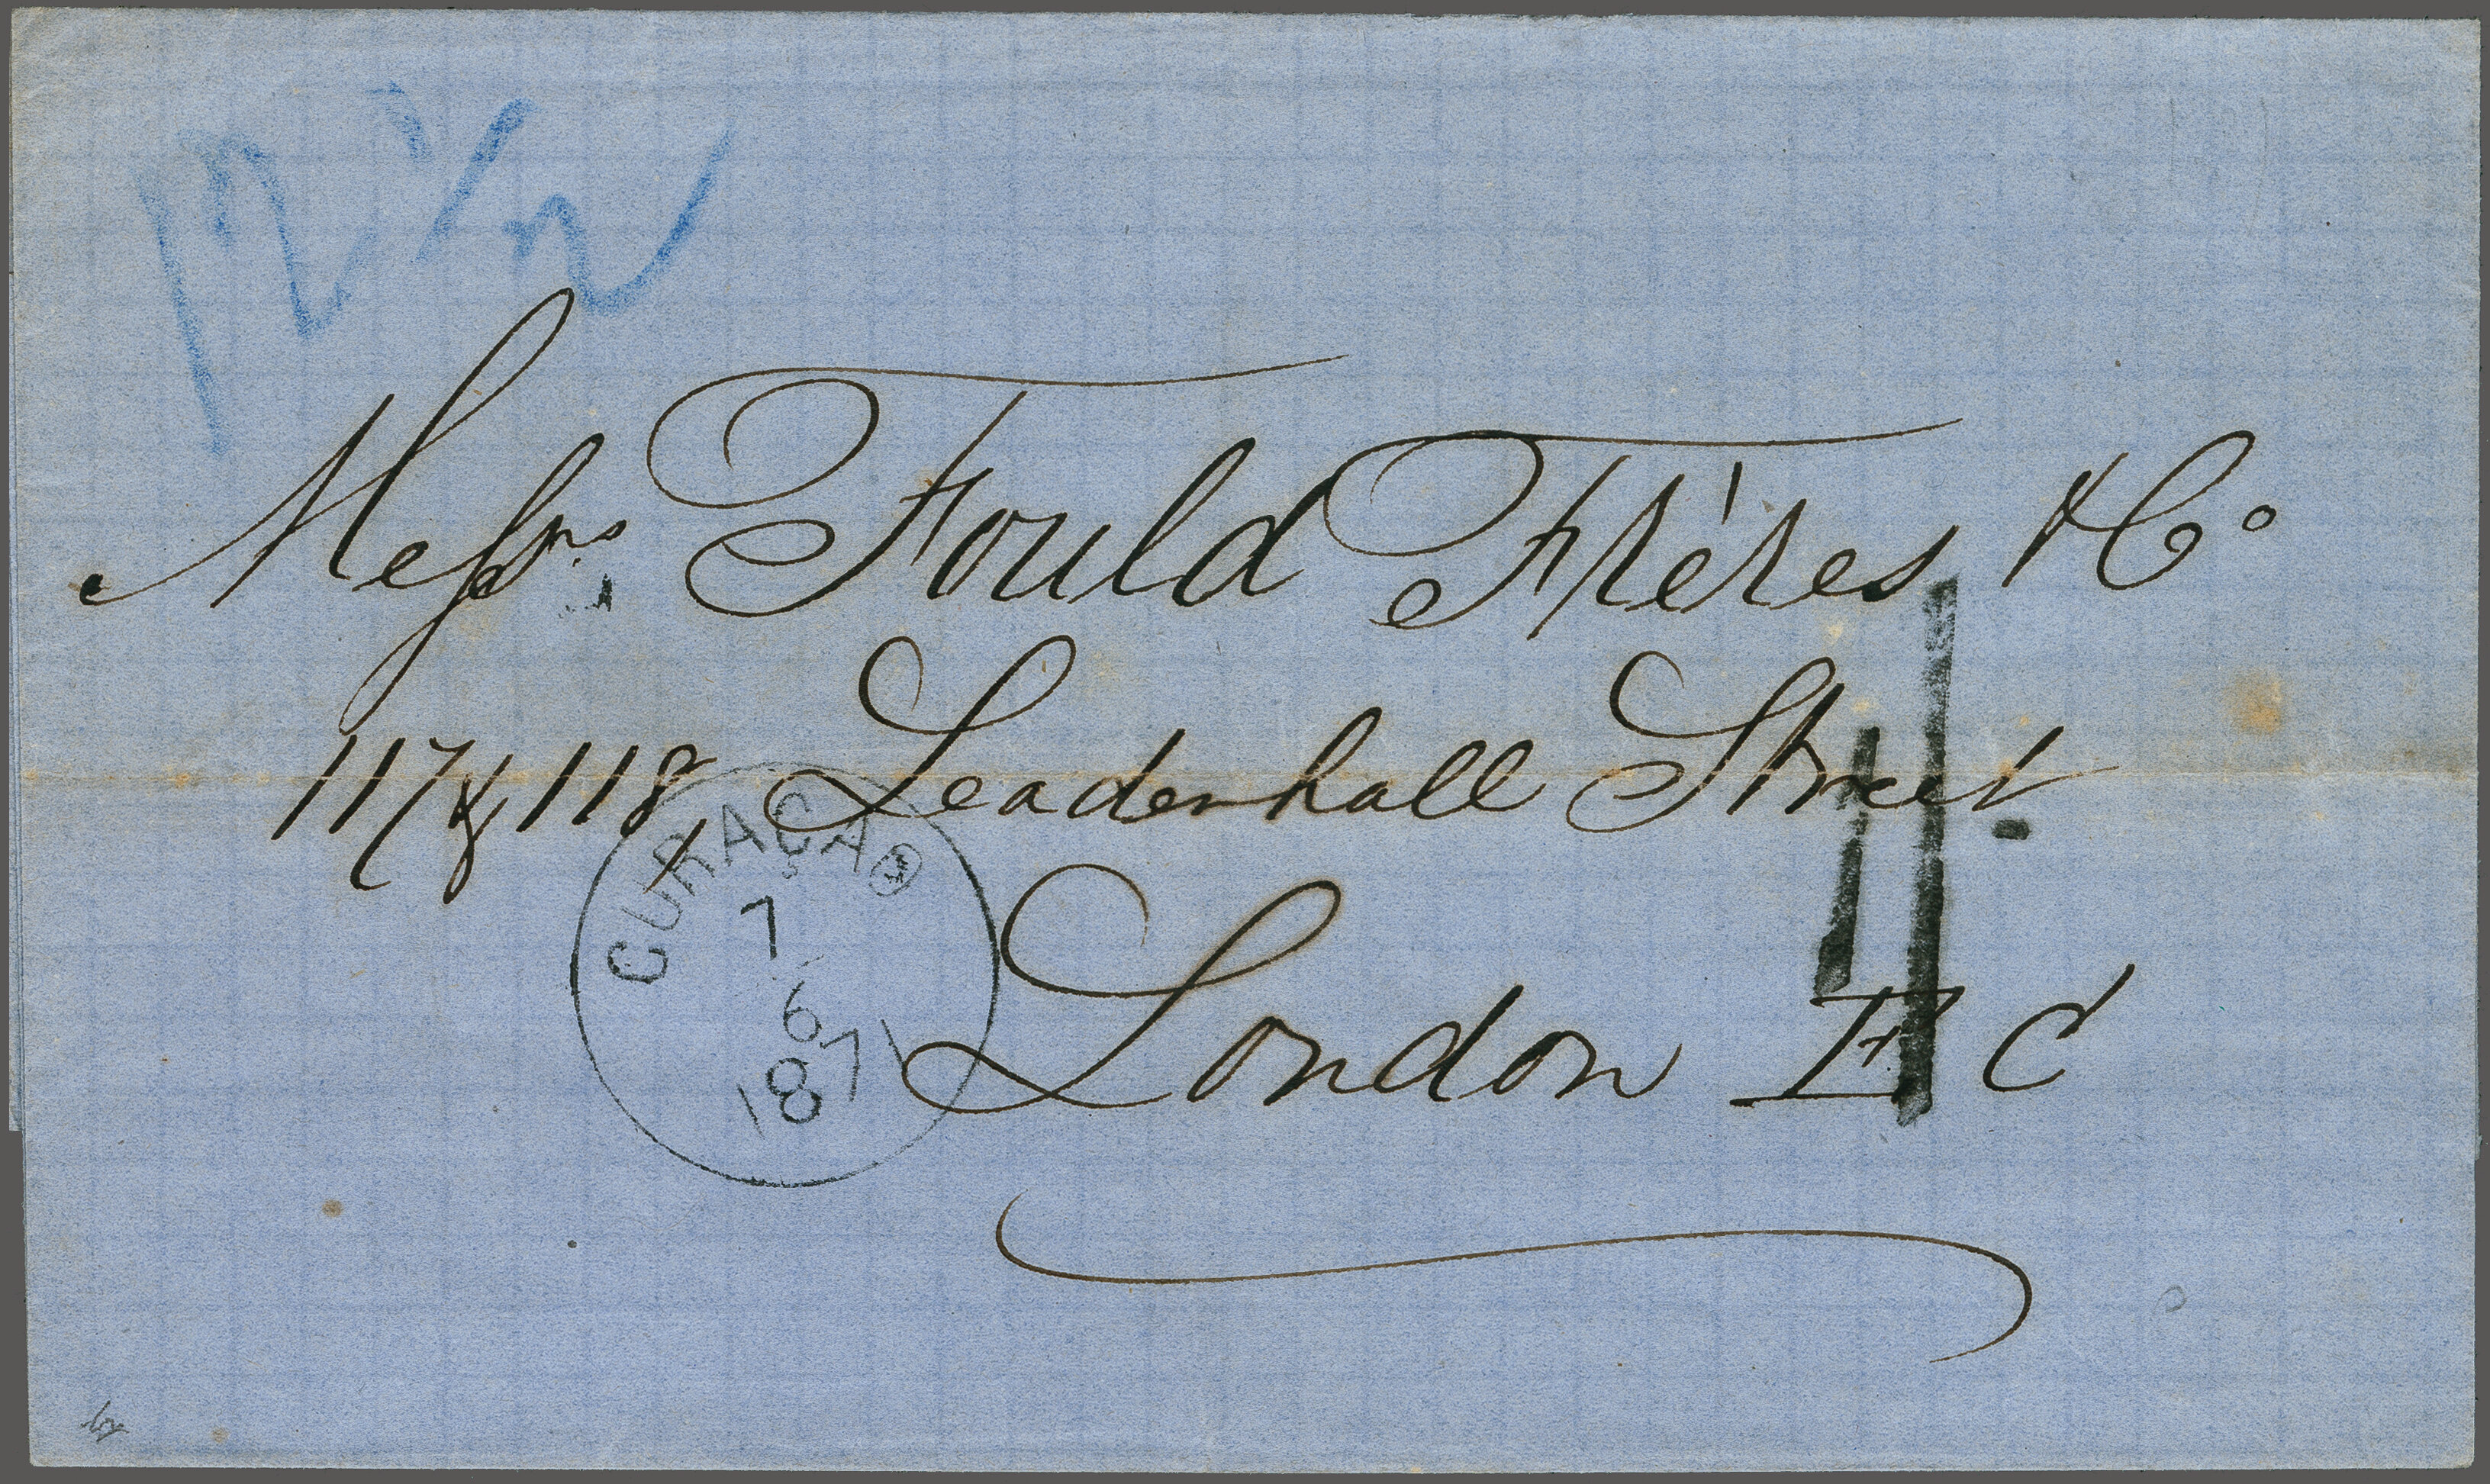 12 1/2
Messrs. Fould Frères & Co
117 & 118, Leadenhall Street.
London E C
CURAÇAO
7
6
1871
1/-